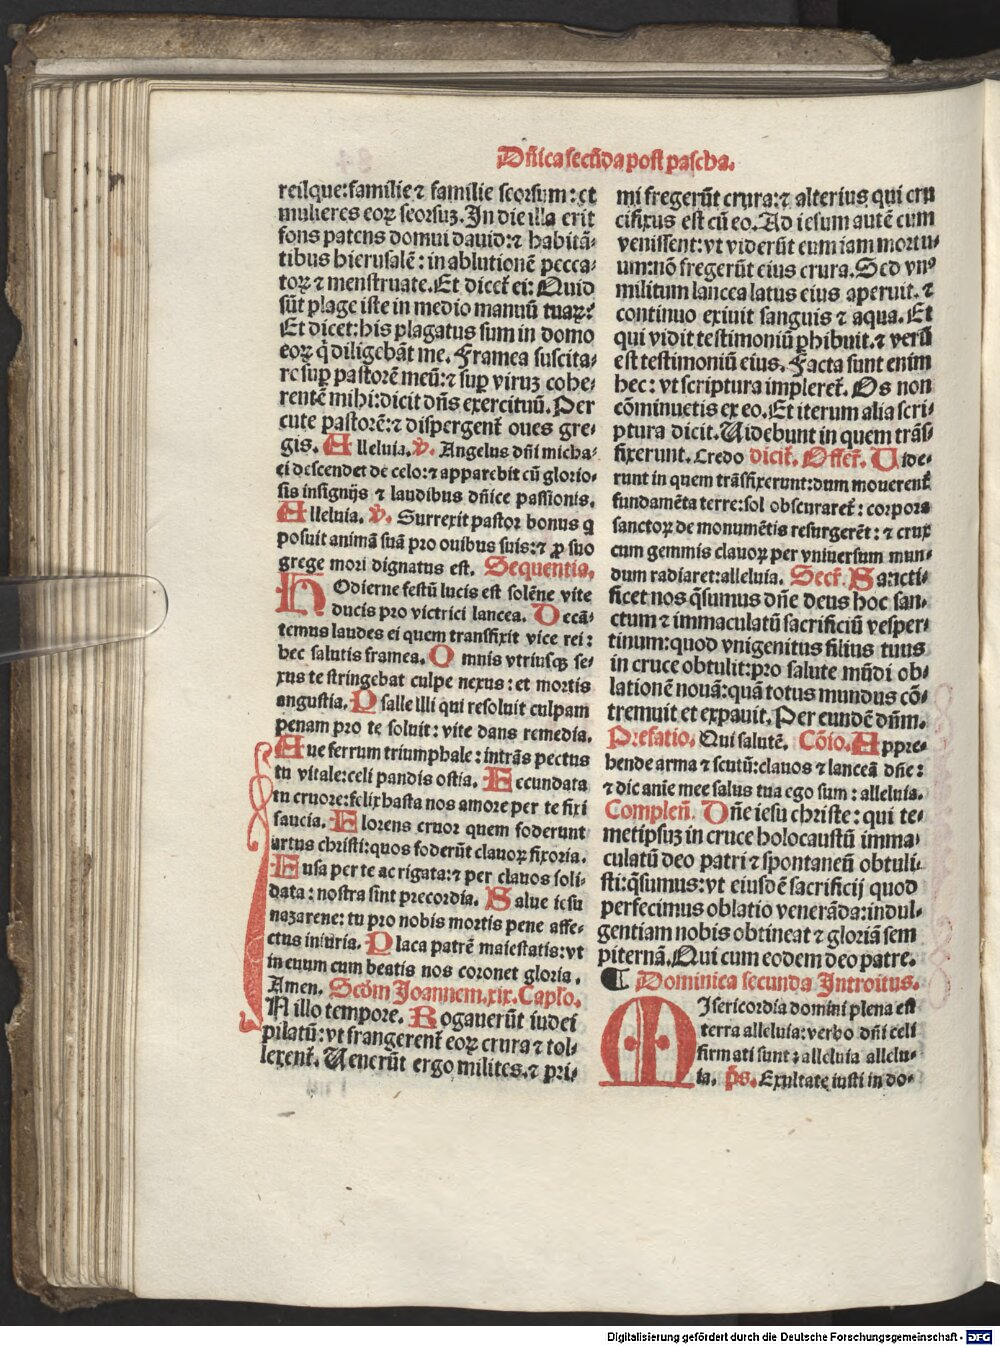 Dñica secūda post pascha.
reilque: familie ⁊ familie seorsum: et
mulieres eoꝝ seorsuꝫ. In die illa erit
fons patens domui dauid: ⁊ habitā-
tibus hierusalē: in ablutionē pecca-
toꝝ ⁊ menstruate. Et dicet̄ ei: Quid
sūt plage iste in medio manuū tuaꝝ?
Et dicet: his plagatus sum in domo
eoꝝ q̇ diligebāt me. Framea suscita-
re suꝑ pastorē meū: ⁊ suꝑ viruꝫ cohe-
rentē mihi: dicit dñs exercituū. Per
cute pastorē: ⁊ dispergent̄ oues gre-
gis. Alleluia. v̄. Angelus dñi micha-
ei descendet de celo: ⁊ apparebit cū glorio-
sis insignijs ⁊ laudibus dñice passionis.
Alleluia. v̄. Surrexit pastor bonus q
posuit animā suā pro ouibus suis: ⁊ ꝓ suo
grege mori dignatus est. Sequentia.
HOdierne festū lucis est solēne vite
ducis pro victrici lancea. Decā-
temus laudes ei quem transfixit vice rei:
hec salutis framea. Omnis vtriusqꝫ se-
xus te stringebat culpe nexus: et mortis
angustia. Psalle illi qui resoluit culpam
penam pro te soluit: vite dans remedia.
Aue ferrum triumphale: intrās pectus
tu vitale: celi pandis ostia. Fecundata
tu cruore: felix hasta nos amore per te fixi
saucia. Florens cruor quem foderunt
artus christi: quos foderūt clauoꝝ fixoria.
Fusa per te ac rigata: ⁊ per clauos soli-
data: nostra sint precordia. Salue iesu
nazarene: tu pro nobis mortis pene affe-
ctus iniuria. Placa patrē maiestatis: vt
in euum cum beatis nos coronet gloria.
Amen. Scd̄m Joannem. xix. Caplo.
IN illo tempore. Rogauerūt iudei
pilatū: vt frangerent̄ eoꝝ crura ⁊ tol-
lerent̄. Uenerūt ergo milites. ⁊ pri-
mi fregerūt crura: ⁊ alterius qui cru
cifixus est cū eo. Ad iesum autē cum
venissent: vt viderūt eum iam mortu-
um: nō fregerūt eius crura. Sed vnꝰ
militum lancea latus eius aperuit. ⁊
continuo exiuit sanguis ⁊ aqua. Et
qui vidit testimoniū ꝑhibuit. ⁊ verū
est testimoniū eius. Facta sunt enim
hec: vt scriptura impleret̄. Os non
cōminuetis ex eo. Et iterum alia scri-
ptura dicit. Uidebunt in quem trās-
fixerunt. Credo dicit̄. Offer̄. Uide-
runt in quem trāsfixerunt: dum mouerent̄
fundamēta terre: sol obscuraret̄: corpora
sanctoꝝ de monumētis resurgerēt: ⁊ crux
cum gemmis clauoꝝ per vniuersum mun-
dum radiaret: alleluia. Secr̄. Sancti-
ficet nos q̄sumus dñe deus hoc san-
ctum ⁊ immaculatū sacrificiū vesper-
tinum: quod vnigenitus filius tuus
in cruce obtulit: pro salute mūdi ob-
lationē nouā: quā totus mundus cō-
tremuit et expauit. Per eundē dñm.
Prefatio. Qui salutē. Cōio. Appre-
hende arma ⁊ scutū: clauos ⁊ lanceā dñe:
⁊ dic anie mee salus tua ego sum: alleluia.
Compleñ. Dñe iesu christe: qui te-
metipsuꝫ in cruce holocaustū imma-
culatū deo patri ⁊ spontaneū obtuli-
sti: q̄sumus: vt eiusdē sacrificij quod
perfecimus oblatio venerāda: indul-
gentiam nobis obtineat ⁊ gloriā sem
piternā. Qui cum eodem deo patre.
¶ Dominica secunda Introitus.
MIsericordia domini plena est
terra alleluia: verbo dñi celi
firmati sunt: alleluia allelu-
ia. p̄s. Exultate iusti in do-
Digitalisierung gefördert durch die Deutsche Forschungsgemeinschaft - DFG